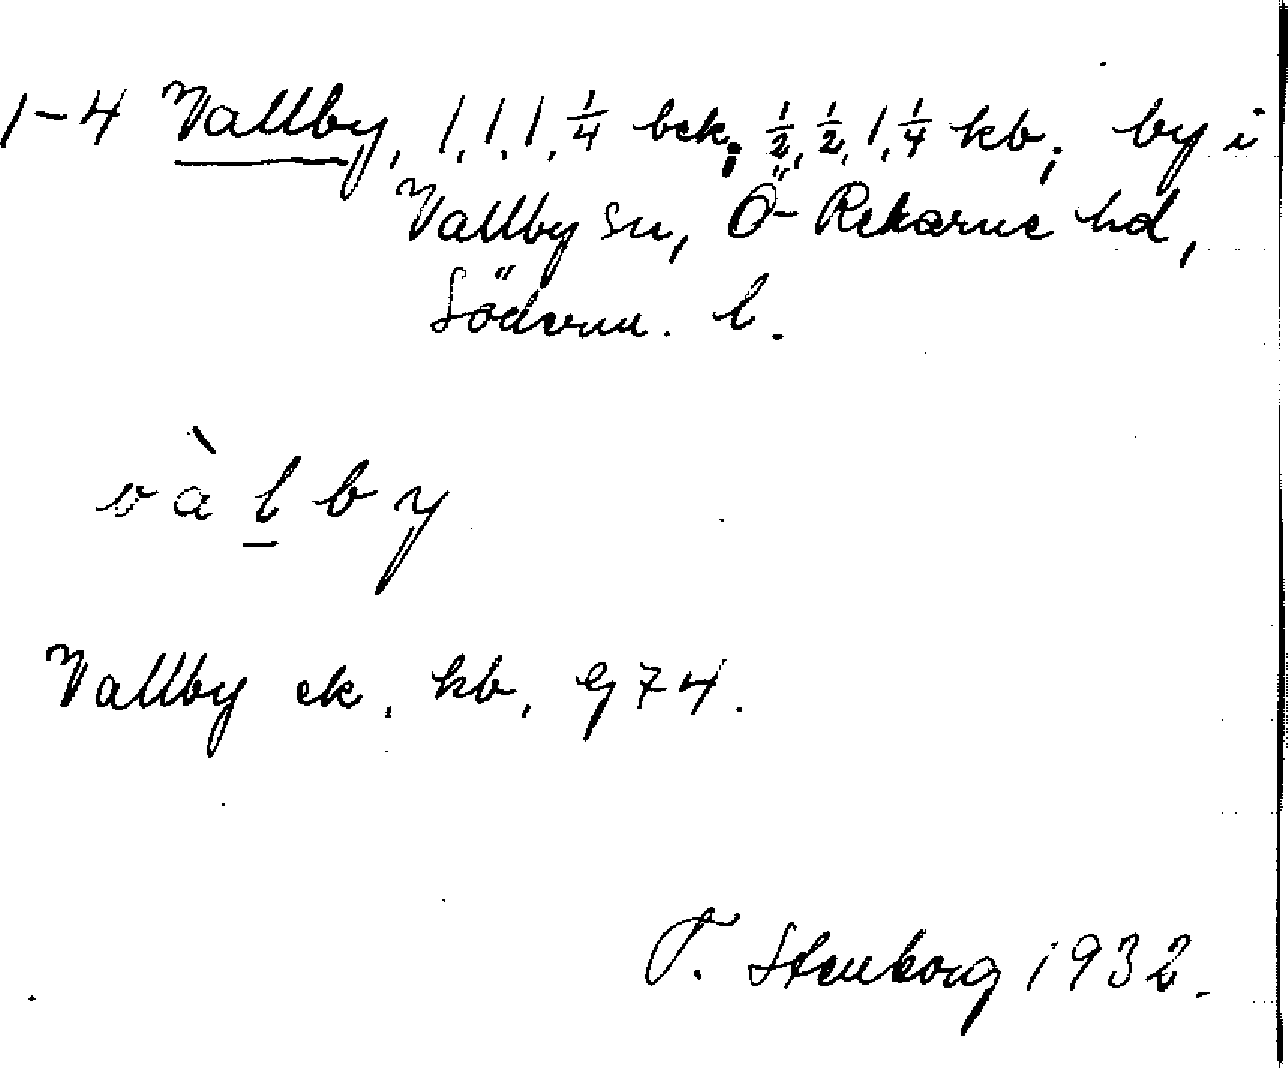 1-4 Vallby, 1, 1, 1, ¼ bek; ½, ½, 1, ¼ kb; by i
Vallby sn, Ö-Rekarne hd,
Söderm. l.
vàḻby
Vallby ek. kb, G 74.
T. Stenborg 1932.